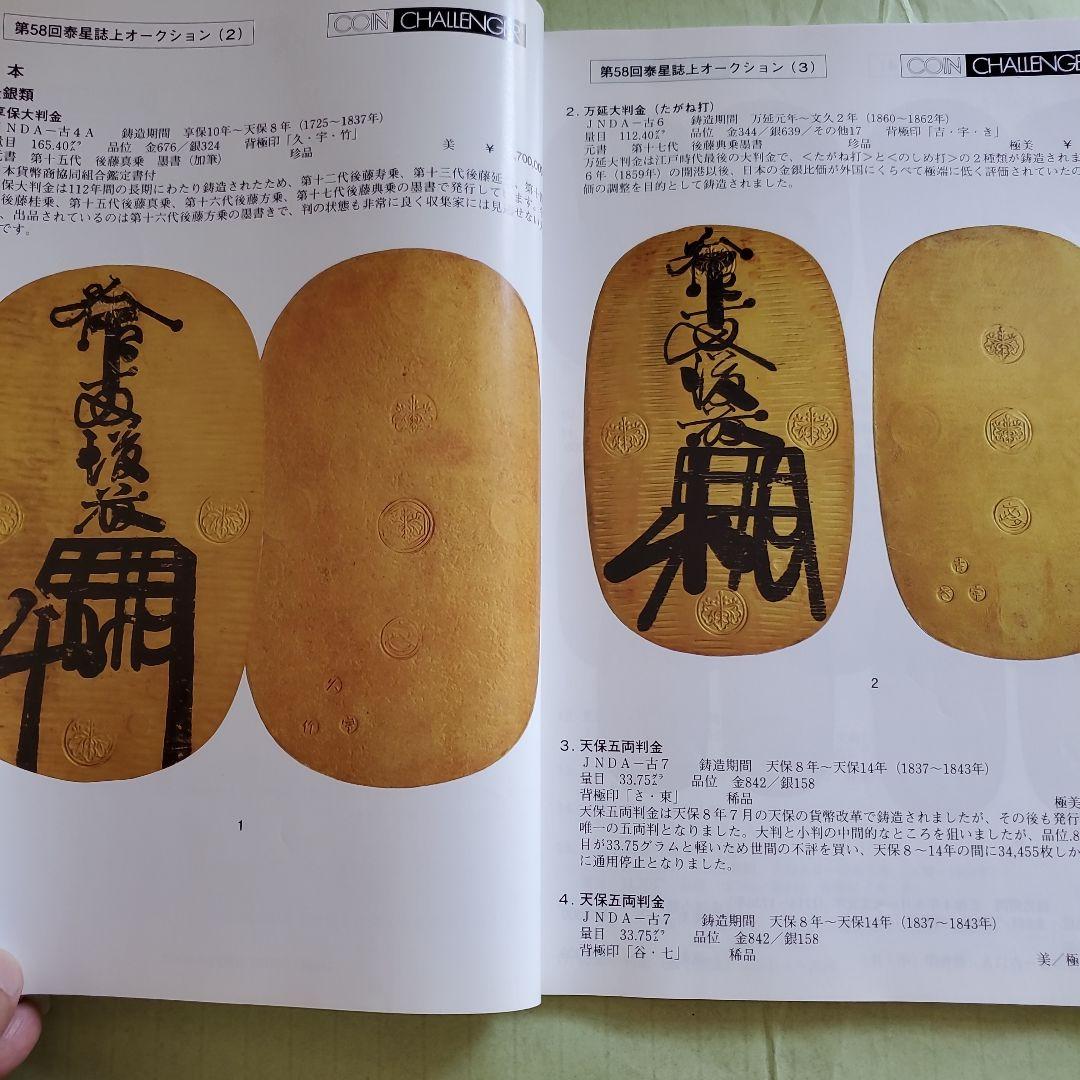 第58回泰星誌上オークション(2)
COIN CHALLENGER
本
銀類
享保大判金
JNDA－古4A 鋳造期間 享保10年～天保8年(1725～1837年)
量目 165.40グラム 品位 金676／銀324 背極印「久・宇・竹」 美 ￥
元書 第十五代 後藤真乗 墨書(加筆) 珍品 ,700,00
本貨幣商協同組合鑑定書付
保大判金は112年間の長期にわたり鋳造されたため、第十二代後藤寿乗、第十三代後藤延
後藤桂乗、第十五代後藤真乗、第十六代後藤方乗、第十七代後藤典乗の墨書で発行して
、出品されているのは第十六代後藤方乗の墨書きで、判の状態も非常に良く収集家には見
です。
久
竹 宇
1
第58回泰星誌上オークション(3)
COIN CHALLENGE
2. 万延大判金 (たがね打)
JNDA－古6 鋳造期間 万延元年～文久2年 (1860～1862年)
量目 112.40グラム 品位 金344／銀639／その他17 背極印「吉・字・き」
元書 第十七代 後藤典乗墨書 珍品 極美 ￥
万延大判金は江戸時代最後の大判金で、<たがね打>と<のしめ打>の2種類が鋳造されま
6年(1859年)の開港以後、日本の金銀比価が外国にくらべて極端に低く評価されていたの
価の調整を目的として鋳造されました。
2
3. 天保五両判金
JNDA－古7 鋳造期間 天保8年～天保14年 (1837～1843年)
量目 33.75グラム 品位 金842／銀158
背極印「さ・東」 稀品 極美
天保五両判金は天保8年7月の天保の貨幣改革で鋳造されましたが、その後も発行
唯一の五両判となりました。大判と小判の中間的なところを狙いましたが、品位.8
目が33.75グラムと軽いため世間の不評を買い、天保8～14年の間に34,455枚しか
に通用停止となりました。
4. 天保五両判金
JNDA－古7 鋳造期間 天保8年～天保14年 (1837～1843年)
量目 33.75グラム 品位 金842／銀158
背極印「谷・七」 稀品 美／極